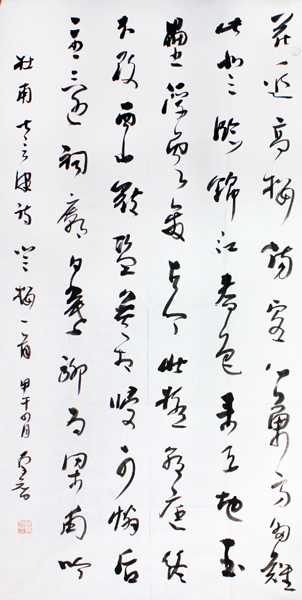 花近高樓傷客心萬方多難
此登臨錦江春色來天地玉
壘浮雲變古今北極朝廷終
不改西山寇盜莫相侵可憐后
主還祠廟日暮聊為梁甫吟
杜甫七言律詩登樓一首 甲午四月